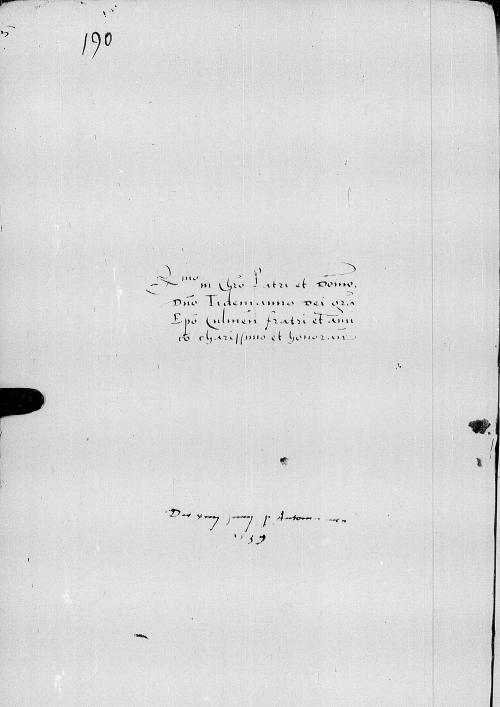 190
Rmo in Chro Patri et Domino,
Dno Tidemanno Dei gra
Epo Culmen̄ fratri et ami
co charissimo et honoran̄
Junij p Antonium
1539